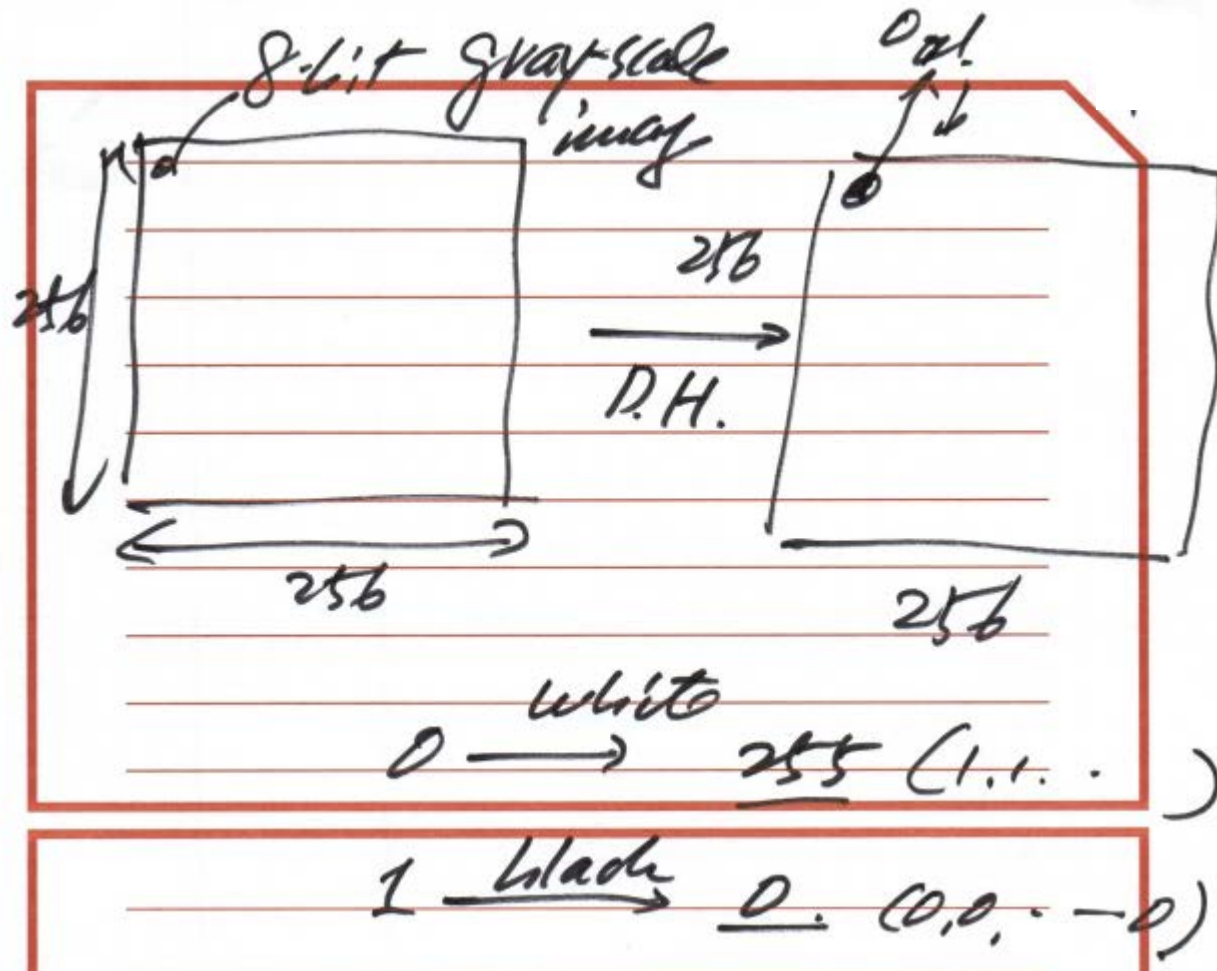 8-bit gray-scale
image
256
256
D.H.
256
256
0 white 255 (1.1. . )
1 black 0. (0,0, . - 0)